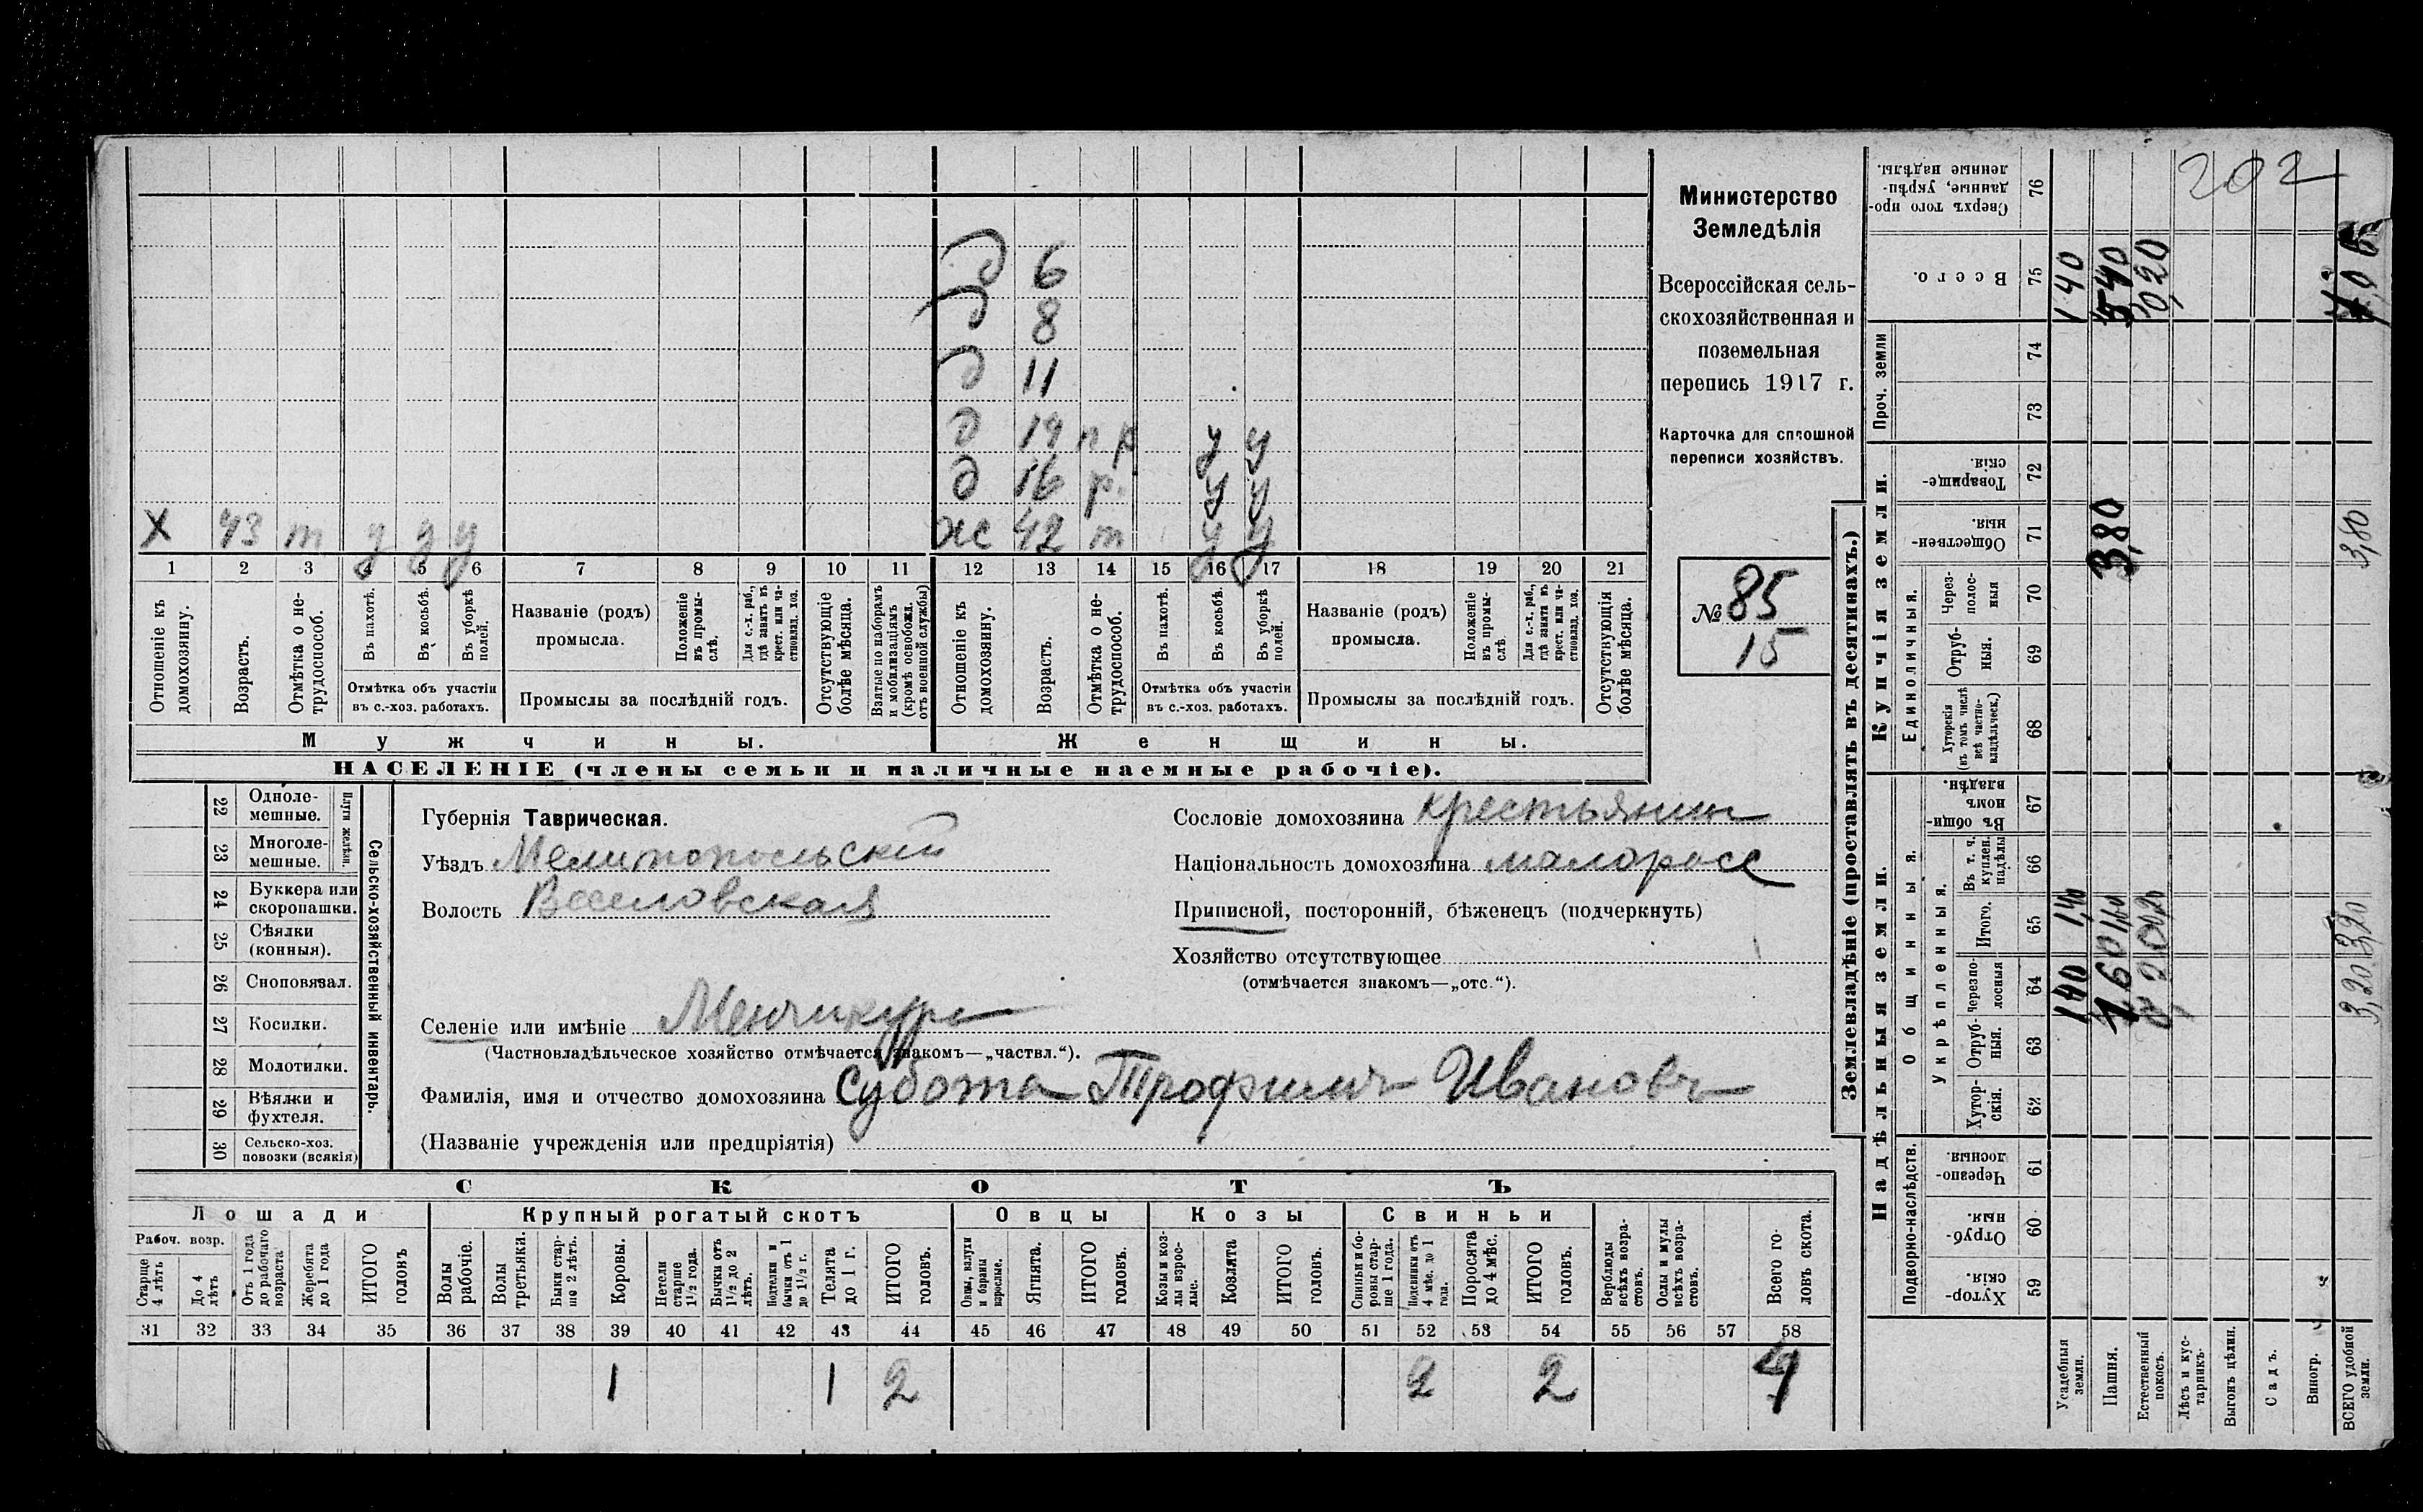 202
Министерство
Земледѣлія
Всероссійская сель-
скохозяйственная и
поземельная
перепись 1917 г.
Карточка для сплошной
переписи хозяйствъ.
№ 85
15
д 6
д 8
д 11
д 14 п р у у
д 16 р. у у
Х 43 т у у у жс 42 т у у
1 2 3 4 5 6 7 8 9 10 11 12 13 14 15 16 17 18 19 20 21
Отношеніе къ домохозяину.
Возрастъ.
Отмѣтка о не-трудоспособ.
Въ пахотѣ.
Въ косьбѣ.
Въ уборкѣ полей.
Отмѣтка объ участіи
въ с.-хоз. работахъ.
Названіе (родъ)
промысла.
Положеніе въ промы-слѣ.
Для с.-х. раб., гдѣ занятъ въ крест. или ча-стновлад. хоз.
Промыслы за послѣдній годъ.
Отсутствующіе болѣе мѣсяца.
Взятые по наборамъ и мобилизаціямъ (кромѣ освобожд. отъ военной службы)
Отношеніе къ домохозяину.
Возрастъ.
Отмѣтка о не-трудоспособ.
Въ пахотѣ.
Въ косьбѣ.
Въ уборкѣ полей.
Отмѣтка объ участіи
въ с.-хоз. работахъ.
Названіе (родъ)
промысла.
Положеніе въ промы-слѣ
Для с.-х. раб., гдѣ занята въ крест. или ча-стновлад. хоз.
Промыслы за послѣдній годъ.
Отсутствующія болѣе мѣсяца.
Мужчины. Женщины.
НАСЕЛЕНІЕ (члены семьи и наличные наемные рабочіе).
Сельско-хозяйственный инвентарь.
Плуги желѣзн.
22 Одноле-мешные.
23 Многоле-мешные.
24 Буккера или скоропашки.
25 Сѣялки (конныя).
26 Сноповязал.
27 Косилки.
28 Молотилки.
29 Вѣялки и фухтеля.
30 Сельско-хоз. повозки (всякія)
Губернія Таврическая.
Уѣздъ Мелитопольскій
Волость Веселовская
Сословіе домохозяина крестьянин
Національность домохозяина малоросс
Приписной, посторонній, бѣженецъ (подчеркнуть)
Хозяйство отсутствующее
(отмѣчается знакомъ—„отс.“).
Селеніе или имѣніе Менчикуръ
(Частновладѣльческое хозяйство отмѣчается знакомъ—„частвл.“).
Фамилія, имя и отчество домохозяина Субота Трофимъ Ивановъ
(Названіе учрежденія или предпріятія)
СКОТЪ
Лошади Крупный рогатый скотъ Овцы Козы Свиньи
Рабоч. возр.
Старше 4 лѣтъ
До 4 лѣтъ
Отъ 1 года до рабочаго возраста
Жеребята до 1 года
ИТОГО головъ
Волы рабочіе.
Волы третьяки.
Быки стар-ше 2 лѣтъ.
Коровы.
Нетели старше 1½ года.
Бычки отъ 1½ до 2 лѣтъ.
Подтелки и бычки отъ 1 до 1½ г.
Телята до 1 г.
ИТОГО головъ.
Овцы, валухи и бараны взрослые.
Ягнята.
ИТОГО головъ.
Козы и коз-лы взрос-лые.
Козлята
ИТОГО головъ.
Свиньи и бо-ровы стар-ше 1 года.
Подсвинки отъ 4 мѣс. до 1 года.
Поросята до 4 мѣс.
ИТОГО головъ.
Верблюды всѣхъ возра-стовъ.
Ослы и мулы всѣхъ возра-стовъ.
Всего го-ловъ скота.
31 32 33 34 35 36 37 38 39 40 41 42 43 44 45 46 47 48 49 50 51 52 53 54 55 56 57 58
1 1 2 2 2 4
Землевладѣніе (проставлять въ десятинахъ.)
Надѣльныя земли.
Купчія земли.
Проч. земли
Подворно-наслѣдств.
Общинныя.
Укрѣпленныя.
Единоличныя.
Хутор-скія. 59
Отруб-ныя. 60
Черезпо-лосныя. 61
Хутор-скія. 62
Отруб-ныя. 63
Черезпо-лосныя 64
Итого. 65
Въ т. ч. куплен. надѣлы 66
Въ общи-номъ владѣн. 67
Хуторскія (въ томъ числѣ всѣ частно-владѣльческ.) 68
Отруб-ныя. 69
Через-полос-ныя 70
Обществен-ныя. 71
Товарище-скія. 72
73
74
Всего. 75
Сверхъ того про-данные, укрѣп-ленные надѣлы. 76
Усадебныя земли. 140 1,40 140
Пашня. 1,60 1,60 3,80 5 40
Естественный покосъ. 0,20 0,20
Лѣсъ и кус-тарникъ.
Выгонъ цѣлин.
Садъ.
Виногр.
ВСЕГО удобной земли. 3,20 3,20 3,80